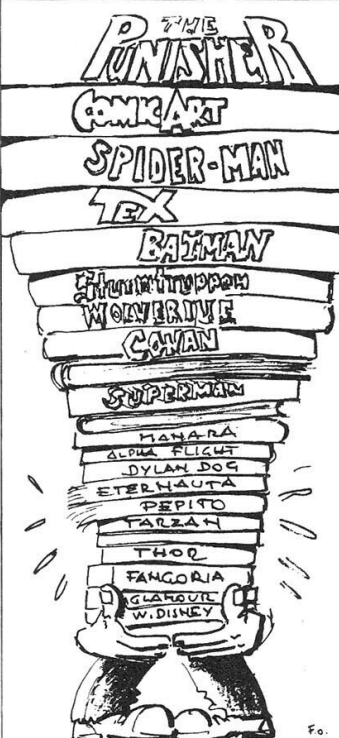 THE
PUNISHER
COMIC ART
SPIDER-MAN
TEX
BATMAN
Sturmtruppen
WOLVERINE
CONAN
SUPERMAN
MANARA
ALPHA FLIGHT
DYLAN DOG
ETERNAUTA
PEPITO
TARZAN
THOR
FANGORIA
GLAMOUR
W. DISNEY
F.O.